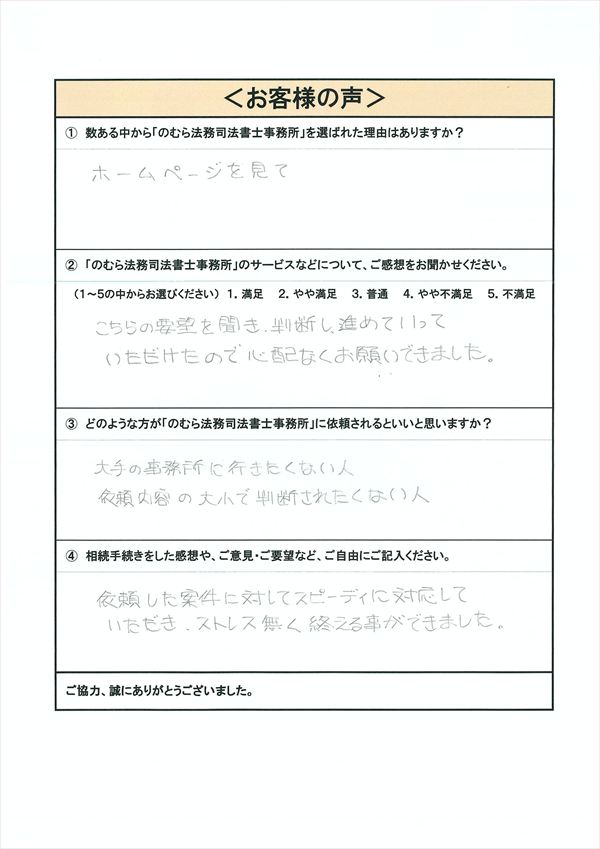 ＜お客様の声＞
① 数ある中から「のむら法務司法書士事務所」を選ばれた理由はありますか？
ホームページを見て
② 「のむら法務司法書士事務所」のサービスなどについて、ご感想をお聞かせください。
（1～5の中からお選びください） 1. 満足　2. やや満足　3. 普通　4. やや不満足　5. 不満足
こちらの要望を聞き、判断し、進めていって
いただけたので心配なくお願いできました。
③ どのような方が「のむら法務司法書士事務所」に依頼されるといいと思いますか？
大手の事務所に行きたくない人
依頼内容の大小で判断されたくない人
④ 相続手続きをした感想や、ご意見・ご要望など、ご自由にご記入ください。
依頼した案件に対してスピーディに対応して
いただき、ストレス無く終える事ができました。
ご協力、誠にありがとうございました。